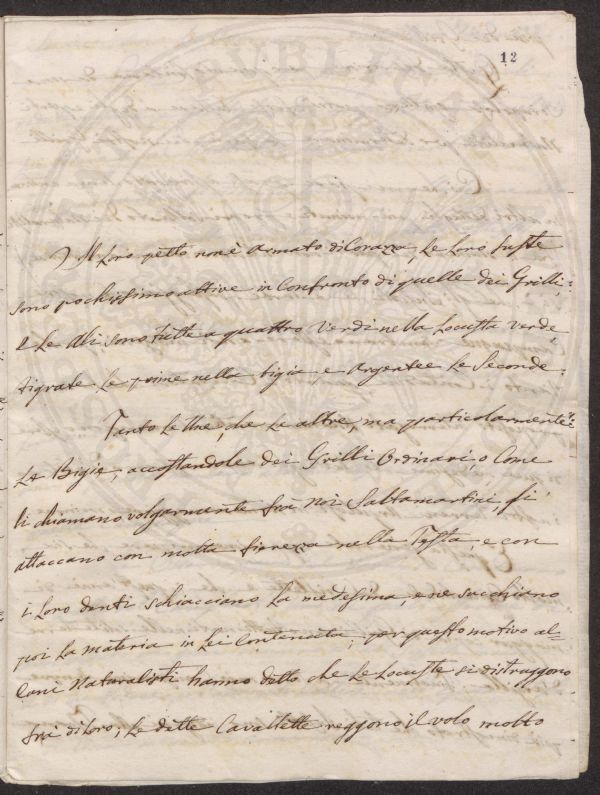 12
Il loro petto non è armato di Corazza, le loro suste
sono pochissimo attive in Confronto di quelle dei Grilli;
e le Ali sono tutte a quattro Verdi nella Locusta verde,
tigrate le prime nella bigia, e argentee le Seconde.
Tanto le Une, che le altre, ma particolarmente
la Bigia, accostandole dei Grilli Ordinari, o Come
li chiamano volgarmente frà noi Saltamartini, gli
attaccano con molta fierezza nella Testa, e con
i loro denti schiacciano la medesima, e ne succhiano
poi la materia in lei Contenuta; per questo motivo al=
cuni Naturalisti hanno detto che le Locuste si distruggono
frà di loro; le dette Cavallette reggono il volo molto